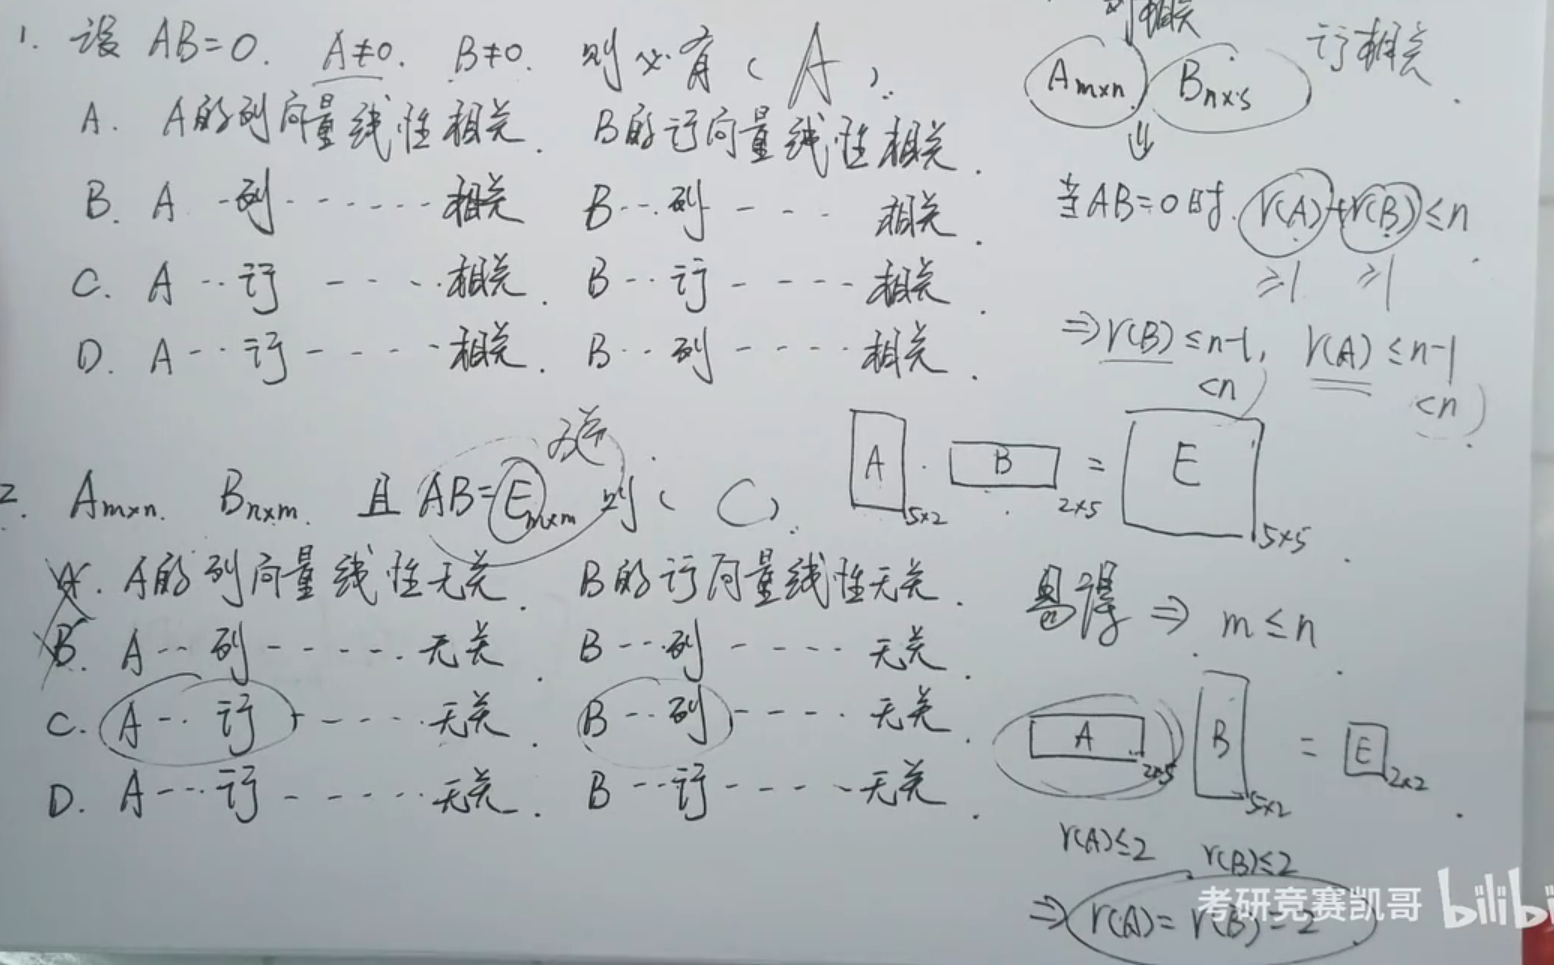 1. 设 AB=0. A≠0. B≠0. 则必有( A ).
A. A的列向量线性相关. B的行向量线性相关.
B. A - 列 - - - - - - 相关 B - - 列 - - - 相关.
C. A - - 行 - - - - 相关. B - - 行 - - - - 相关.
D. A - - 行 - - - - - 相关. B - - 列 - - - - 相关.
列相关
行相关
Am×n Bn×s
⇓
当AB=0时. r(A)+r(B)≤n
≥1 ≥1
⇒ r(B)≤n-1, r(A)≤n-1
<n <n
2. Am×n. Bn×m. 且 AB=Em×m 则( C ).
A. A的列向量线性无关. B的行向量线性无关.
B. A - - 列 - - - - - 无关. B - - 列 - - - - 无关.
C. A - - 行 - - - - - 无关. B - - 列 - - - - 无关.
D. A - - - 行 - - - - - 无关. B - - 行 - - - - 无关.
A 5×2 · B 2×5 = E 5×5
易得 ⇒ m≤n
A 2×5 B 5×2 = E 2×2
r(A)≤2 r(B)≤2
⇒ r(A)=r(B)=2
考研竞赛凯哥 bilibi